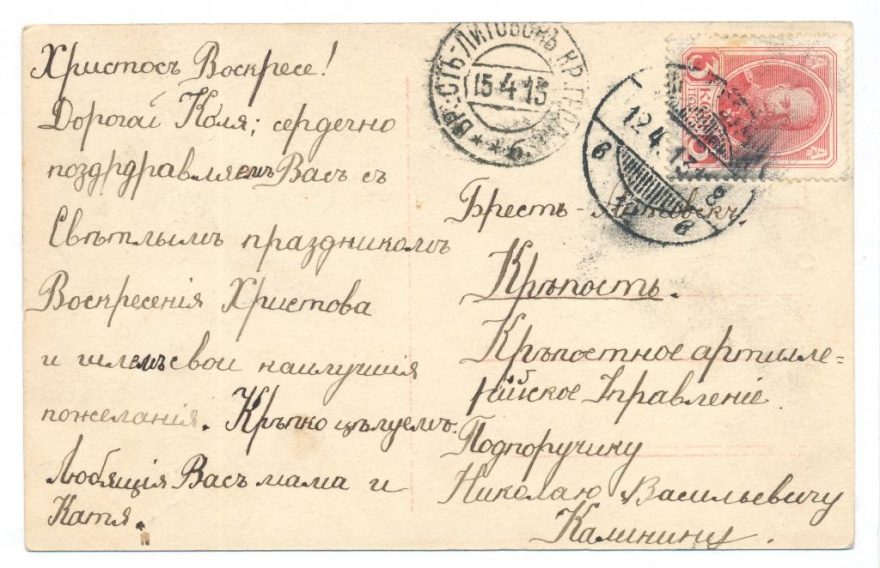 Христосъ Воскресе!
Дорогай Коля; сердечно
поздрдравляемъ Васъ съ
Свѣтлымъ праздникомъ
Воскресенія Христова
и шлемъ свои наилучшія
пожеланія. Крѣпко цѣлуемъ.
Любящія Васъ мама и
Катя.
БРЕСТЪ-ЛИТОВСКЪ КР.
15 4 13
12.4.13
8 8
3 КОП
Брестъ-Литовскъ.
Крѣпость.
Крѣпостное артилле=
рійское Управленіе.
Подпоручику
Николаю Васильевичу
Калинину.